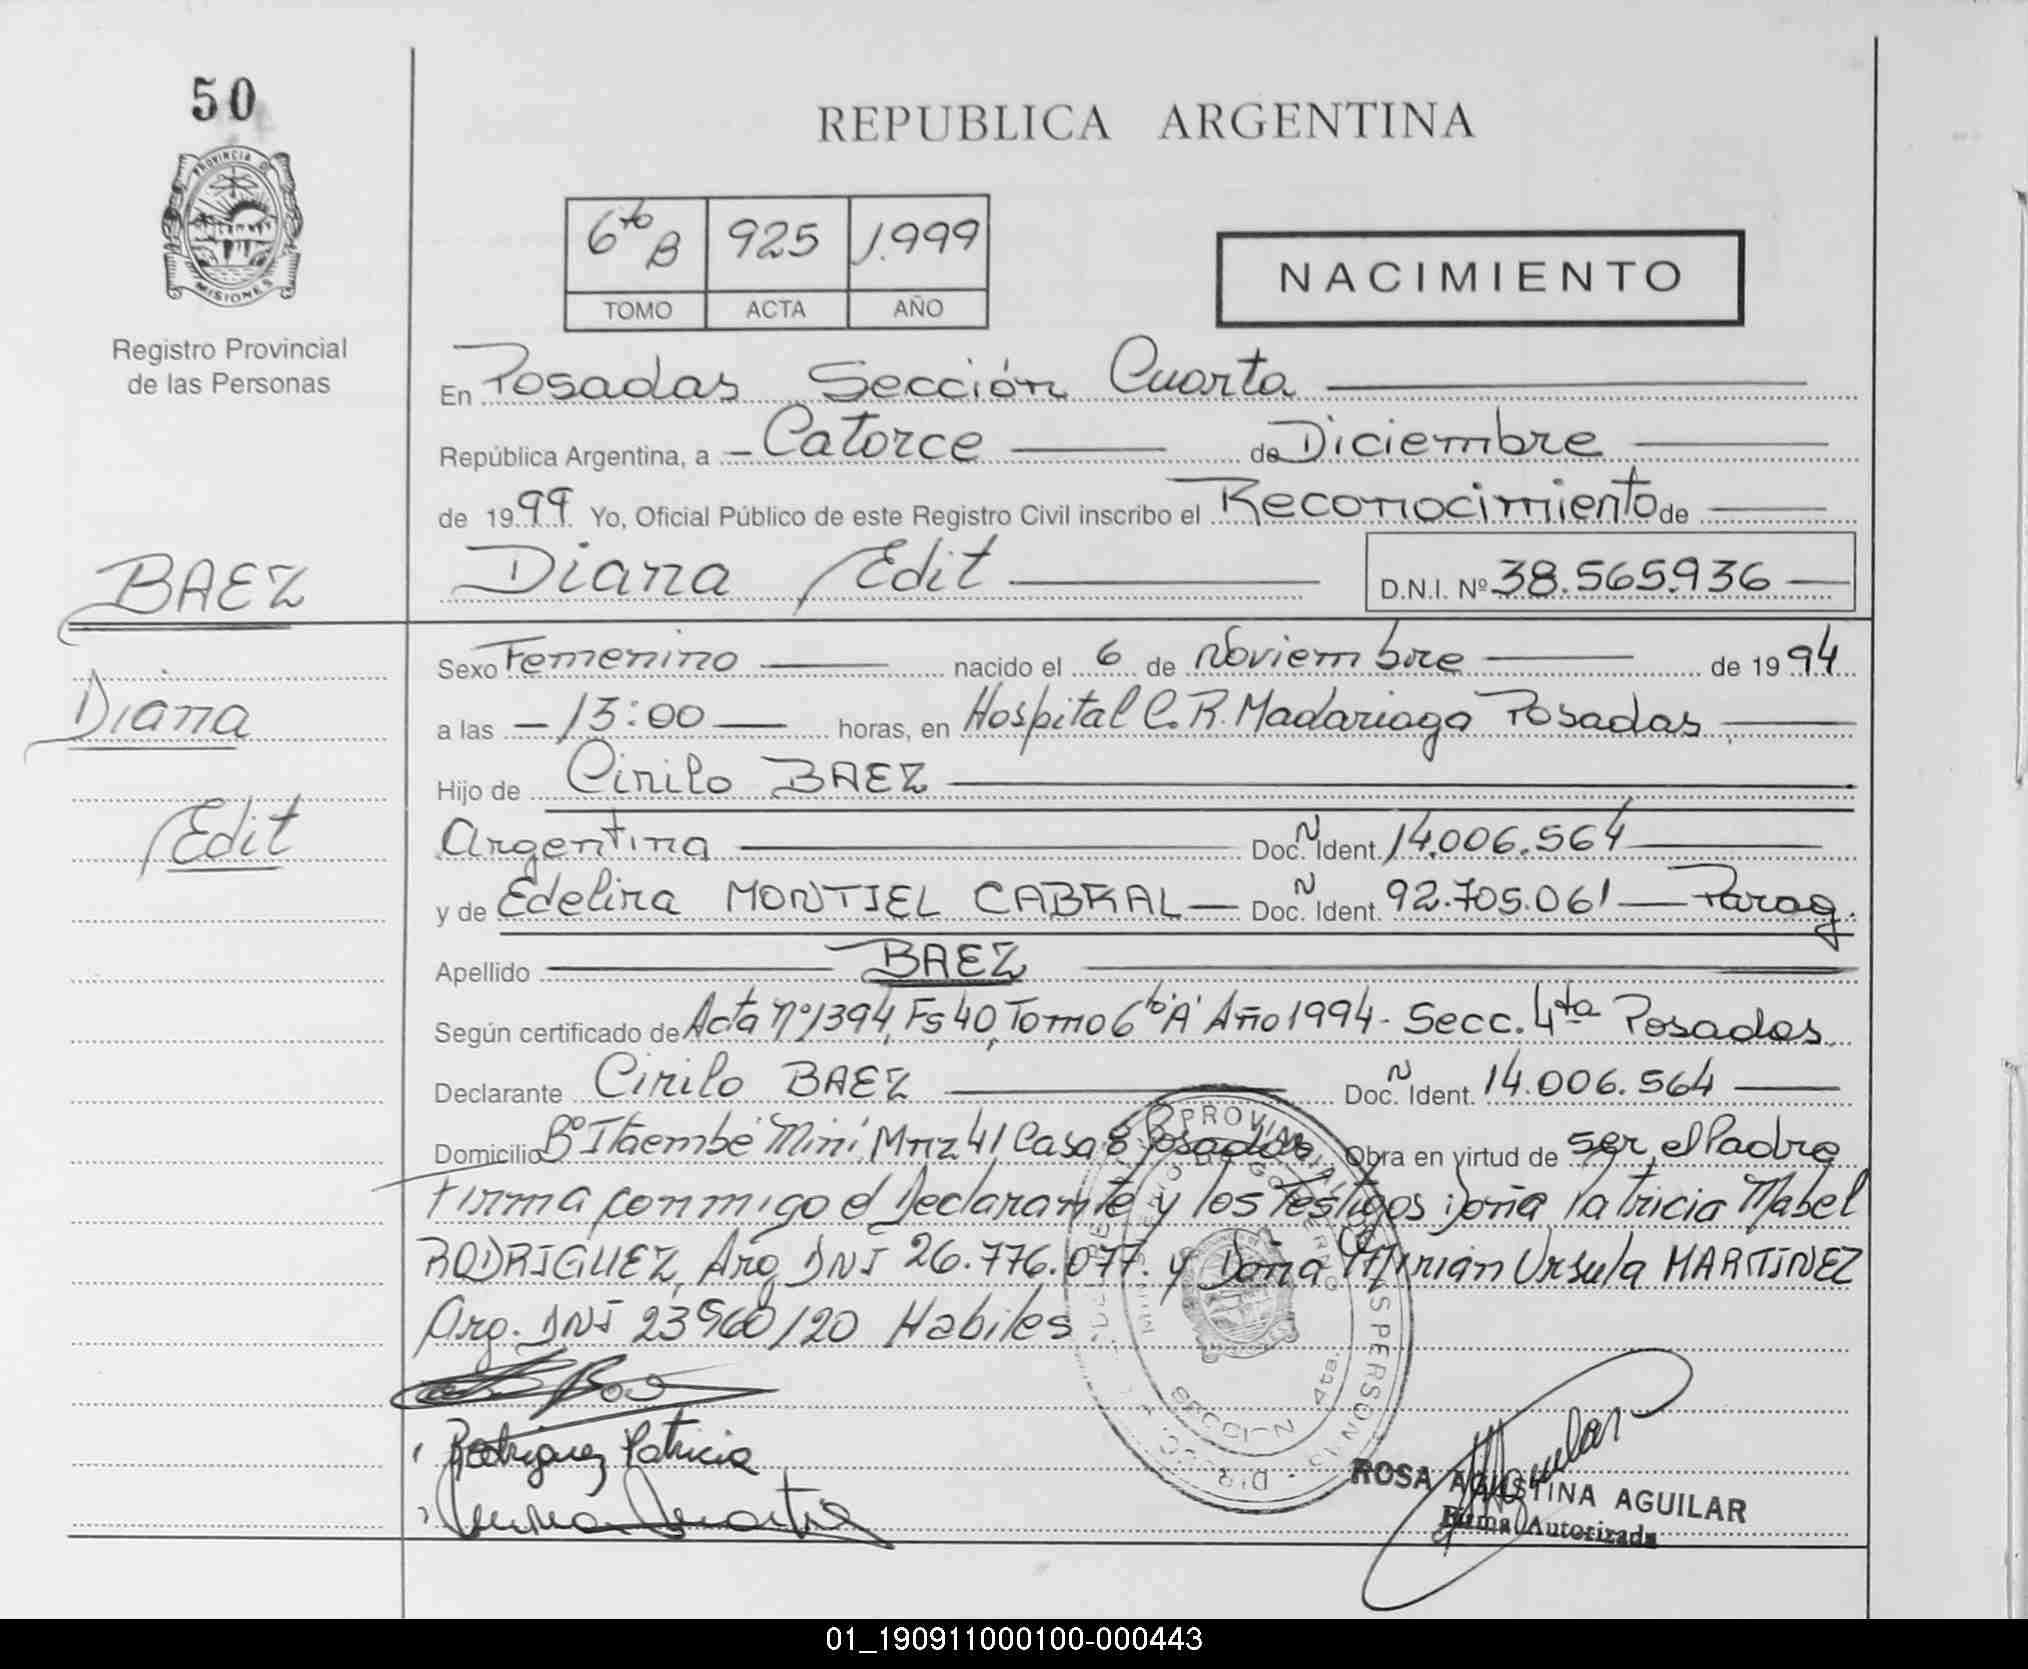 50
REPUBLICA ARGENTINA
PROVINCIA DE
MISIONES
6to B 925 1.999
TOMO ACTA AÑO
NACIMIENTO
Registro Provincial
de las Personas
En Posadas Sección Cuarta
República Argentina, a Catorce de Diciembre
de 1999 Yo, Oficial Público de este Registro Civil inscribo el Reconocimiento de
BAEZ
Diana Edit D.N.I. Nº 38.565.936
Sexo Femenino nacido el 6 de Noviembre de 1994
Diana
a las 13:00 horas, en Hospital C. R. Madariaga Posadas
Hijo de Cirilo BAEZ
Edit
Argentina Doc. N Ident. 14.006.564
y de Edelira MONTIEL CABRAL Doc. N Ident. 92.705.061 Parag.
Apellido BAEZ
Según certificado de Acta nº 1394, Fs 40, Tomo 6to "A" Año 1994 - Secc. 4ta Posadas
Declarante Cirilo BAEZ Doc. N Ident. 14.006.564
Domicilio Bº Itaembé Miní Mnz 41 Casa 8 Posadas Obra en virtud de ser el Padre
Firma conmigo el Declarante y los Testigos: Doña Patricia Mabel
RODRIGUEZ, Arg. DNI 26.776.077. y Doña Mirian Ursula MARTINEZ
Arg. DNI 23.960.120 Habiles
Rodriguez Patricia
SECCION 4ta.
Aguilar
ROSA AGUSTINA AGUILAR
Firma Autorizada
01_190911000100-000443